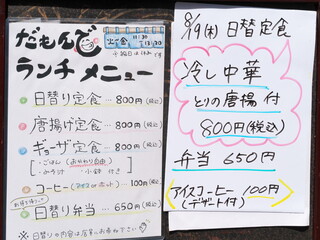 だもんで
ランチ メニュー
日替り定食 … 800円(税込)
唐揚げ定食 … 800円(税込)
ギョーザ定食 … 800円(税込)
・ごはん(おかわり自由)
・みそ汁 ・小鉢 付き
コーヒー(アイス or ホット) … 100円(税込)
お持ち帰りOK
日替り弁当 … 650円(税込)
8/19(木) 日替定食
冷し中華
とりの唐揚 付
800円(税込)
弁当 650円
アイスコーヒー 100円
(デザート付)